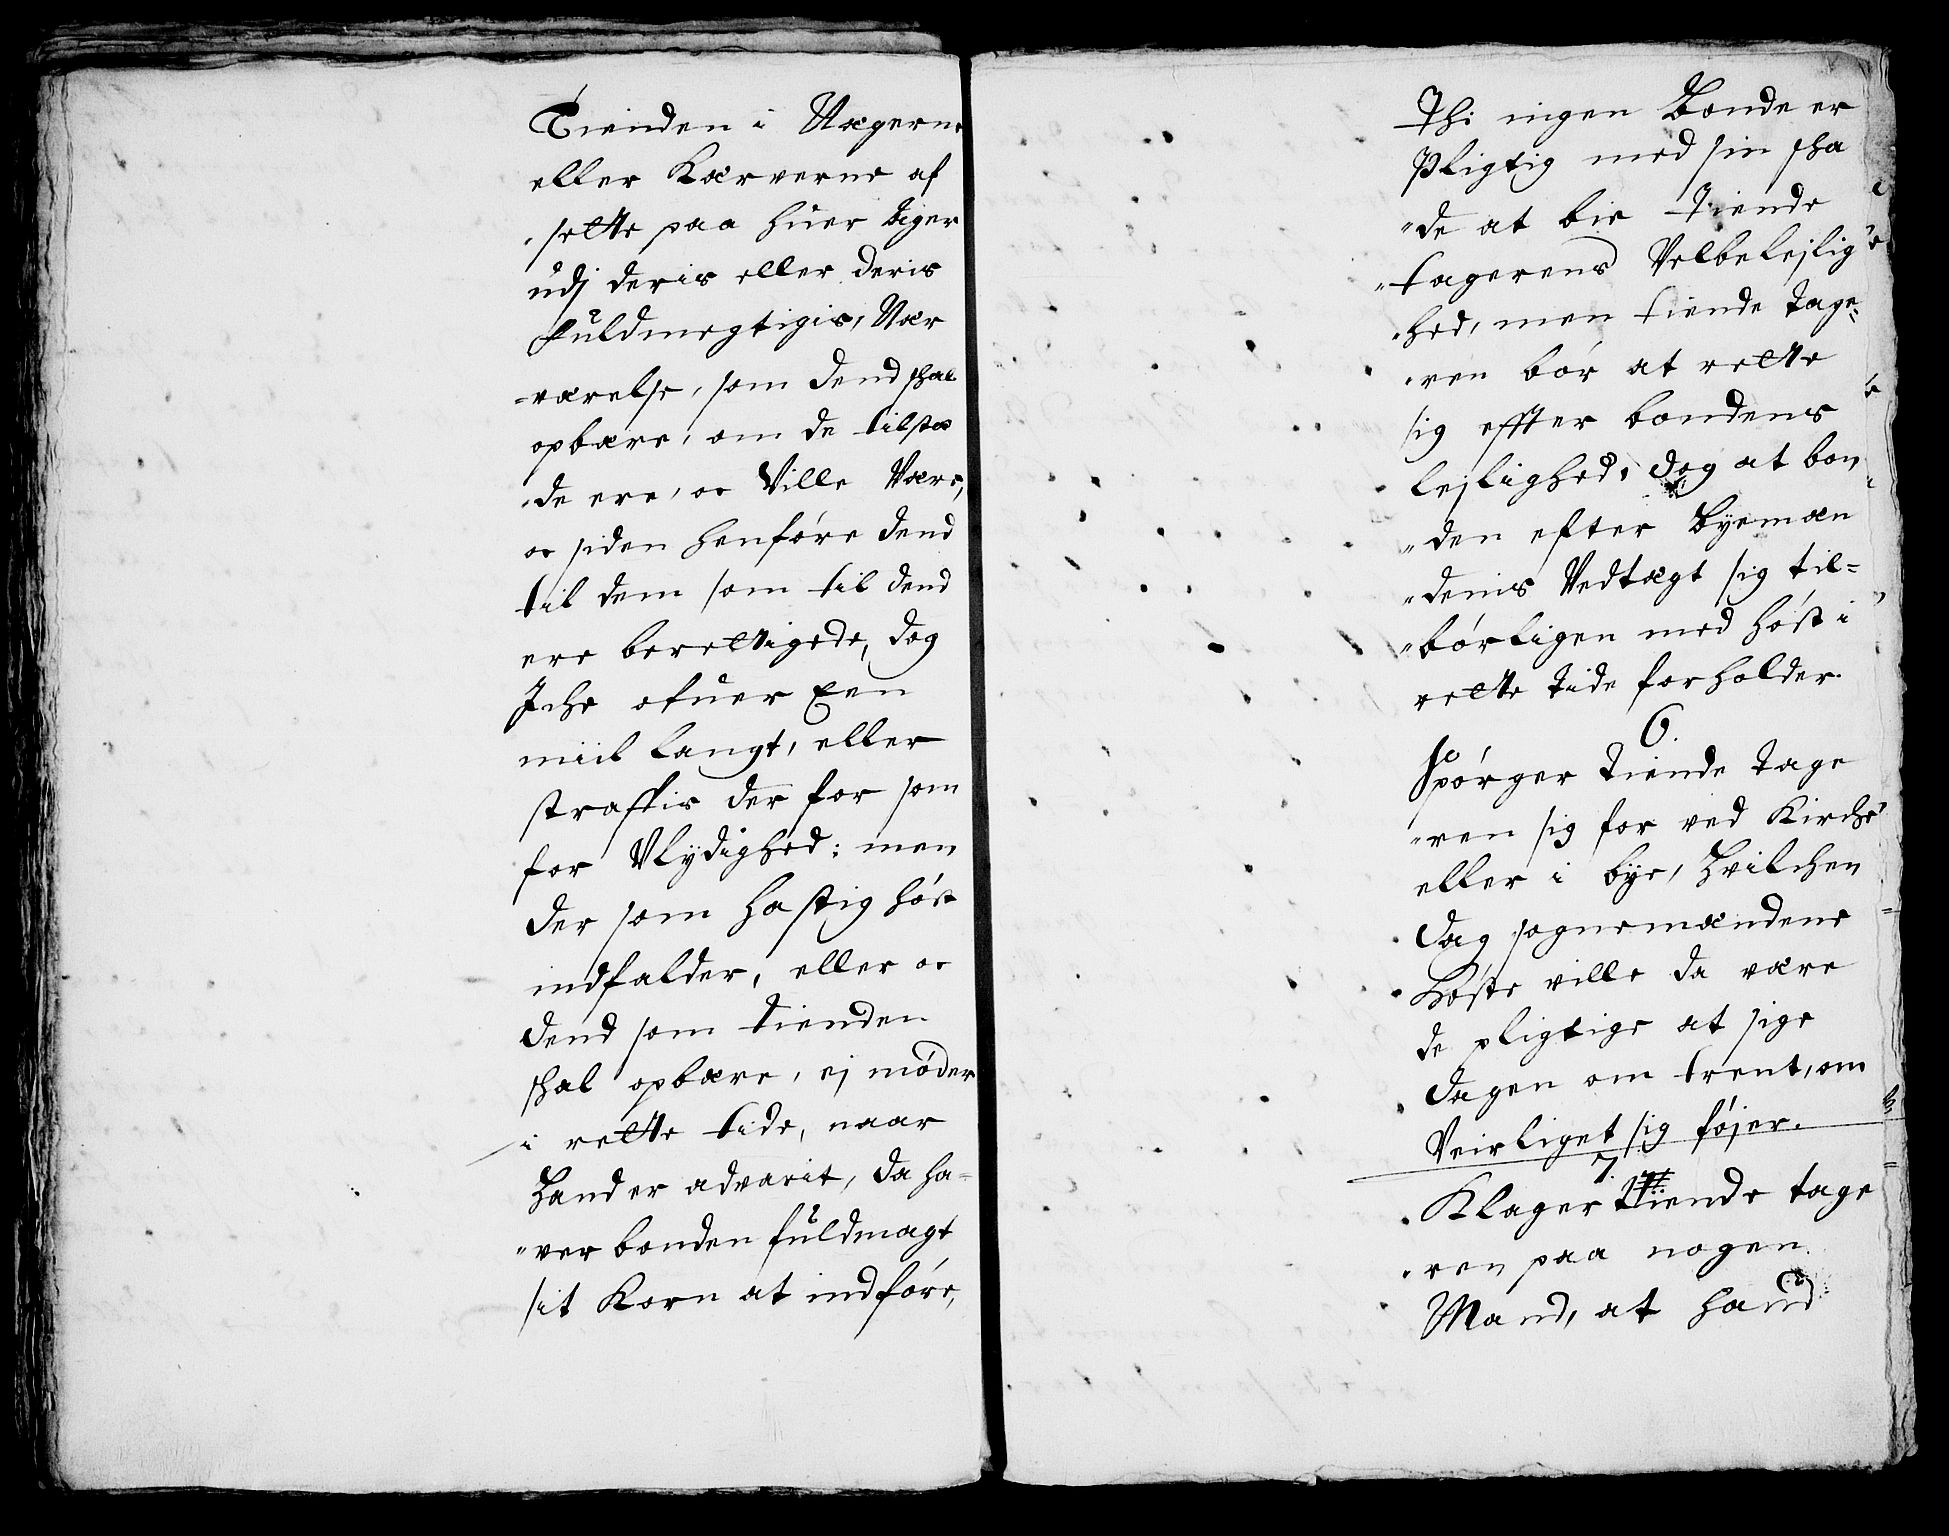 Tienden i Nægerne
eller Kærverne af
„sette paa huer Ager
udj deris eller deris
fuldmegtigis, Nær
=værelse, som dend skal
opbære, om de tilstæ
„de ere, oc Ville Være,
oc siden henføre dend
til dem som til dend
ere berettigede, dog
Iche ofuer Een
miil langt, eller
straffis der for som
for Vlydighed; men
der som hastig høst
indfalder, eller oc
dend som tienden
skal opbære, ej møder
i rette tide, naar
Hand er advarit, da ha=
„ver bonden fuldmagt
sit Korn at indføre,
Thi ingen Bonde er
Pligtig med sin ska
„de at bie tiende
„tagerens Velbelejlig
„hed, men tiende tage=
„ren bør at rette
sig effter bondens
lejlighed, dog at bon
„den efter Byemæn
„denis Vedtægt sig til=
„børligen med høst i
rette tide forholder.
6.
Spørger tiende tage
„ren sig for ved Kirche
eller i bye, Hvilchen
dag sognemændene
Høste ville da være
de pligtige at sige
dagen om trent, om
Veirliget sig føjer.
7.
Klager tiende tage
„ren paa nogen
Mand, at hand